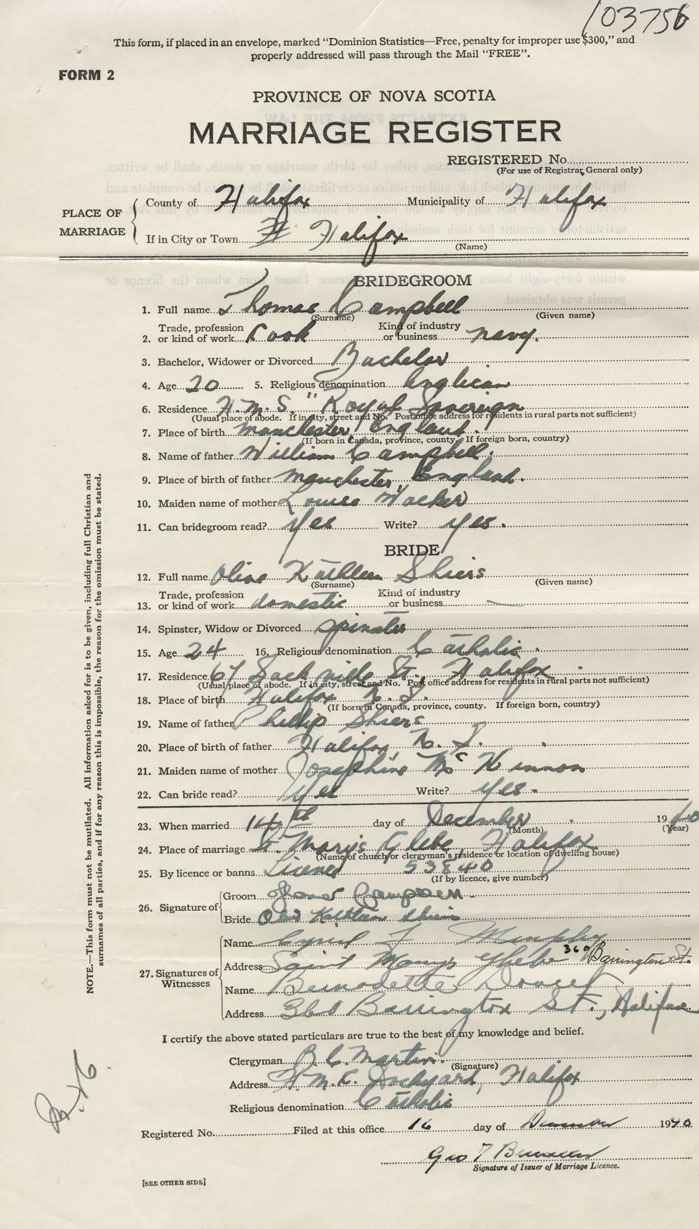 103756
This form, if placed in an envelope, marked "Dominion Statistics—Free, penalty for improper use $300," and
properly addressed will pass through the Mail "FREE".
FORM 2
PROVINCE OF NOVA SCOTIA
MARRIAGE REGISTER
REGISTERED No.
(For use of Registrar General only)
PLACE OF MARRIAGE
County of Halifax Municipality of Halifax
If in City or Town Halifax
(Name)
BRIDEGROOM
1. Full name Thomas Campbell
(Surname) (Given name)
2. Trade, profession or kind of work Cook Kind of industry or business navy.
3. Bachelor, Widower or Divorced Bachelor
4. Age 20 5. Religious denomination Anglican
6. Residence H.M.S. "Royal Sovereign
(Usual place of abode. If in city, street and No. Post office address for residents in rural parts not sufficient)
7. Place of birth Manchester, England.
(If born in Canada, province, county. If foreign born, country)
8. Name of father William Campbell.
9. Place of birth of father Manchester, England.
10. Maiden name of mother Louise Walker
11. Can bridegroom read? yes Write? yes.
BRIDE
12. Full name Olive Kathleen Shiers
(Surname) (Given name)
13. Trade, profession or kind of work domestic Kind of industry or business
14. Spinster, Widow or Divorced spinster
15. Age 24 16. Religious denomination Catholic.
17. Residence 67 Sackville St. Halifax.
(Usual place of abode. If in city, street and No. Post office address for residents in rural parts not sufficient)
18. Place of birth Halifax N.S.
(If born in Canada, province, county. If foreign born, country)
19. Name of father Phillip Shiers
20. Place of birth of father Halifax, N.S.
21. Maiden name of mother Josephine McKinnon
22. Can bride read? Yes Write? yes.
23. When married 14th day of December 1940
(Month) (Year)
24. Place of marriage St. Mary's Glebe Halifax
(Name of church or clergyman's residence or location of dwelling house)
25. By licence or banns Licence 53840
(If by licence, give number)
26. Signature of
Groom Thomas Campbell
Bride Olive Kathleen Shiers
27. Signatures of Witnesses
Name Cyril J Murphy
Address Saint Marys Glebe 360 Barrington St.
Name Bernadette Doucet
Address 360 Barrington St., Halifax
I certify the above stated particulars are true to the best of my knowledge and belief.
Clergyman B.C. Martin.
(Signature)
Address H.M.C. Dockyard, Halifax
Religious denomination Catholic
Registered No. Filed at this office 16 day of December 1940
Geo T
Signature of Issuer of Marriage Licence.
[SEE OTHER SIDE]
NOTE.—This form must not be mutilated. All information asked for is to be given, including full Christian and
surnames of all parties, and if for any reason this is impossible, the reason for the omission must be stated.